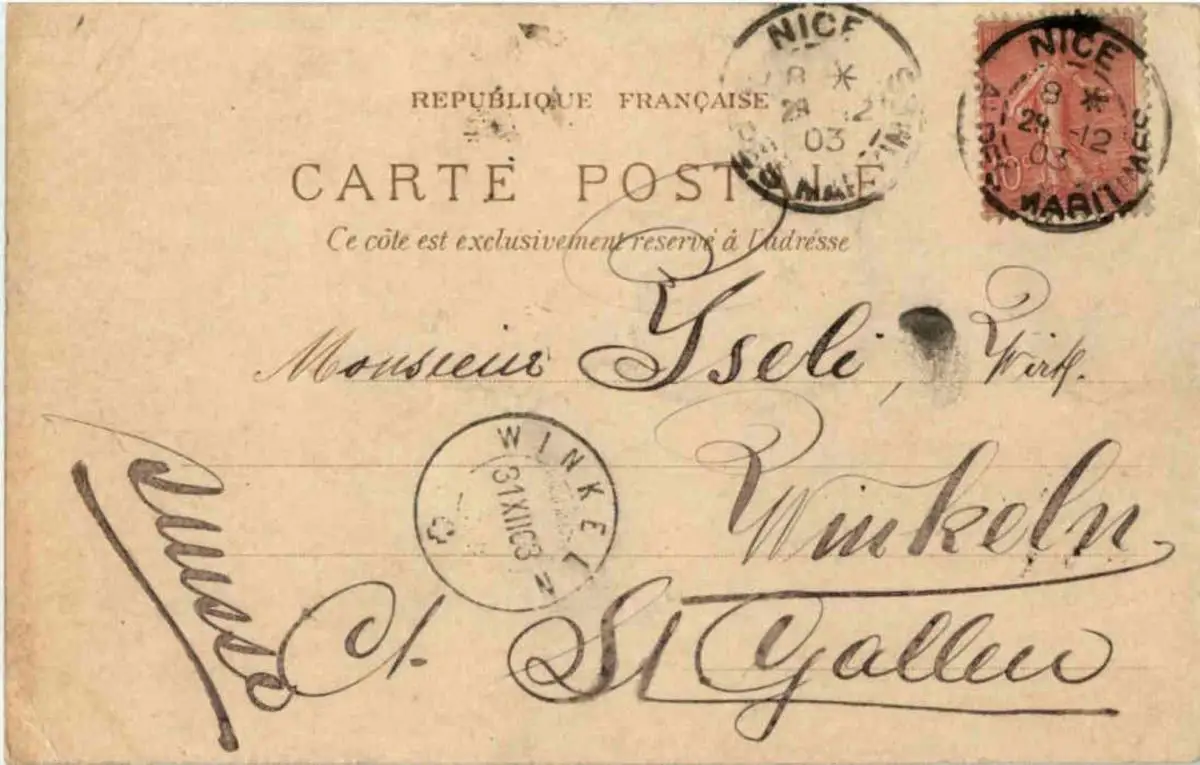 REPUBLIQUE FRANÇAISE
CARTE POSTALE
Ce côte est exclusivement reservé á l'adrésse
NICE
8 *
29 -12
03
ALPES MARITIMES
NICE
8 *
29 -12
03
ALPES MARITIMES
10
Monsieur Iseli, Wirt.
WINKELN
31 XII 03
Winkeln.
Ct. St Gallen
Suisse